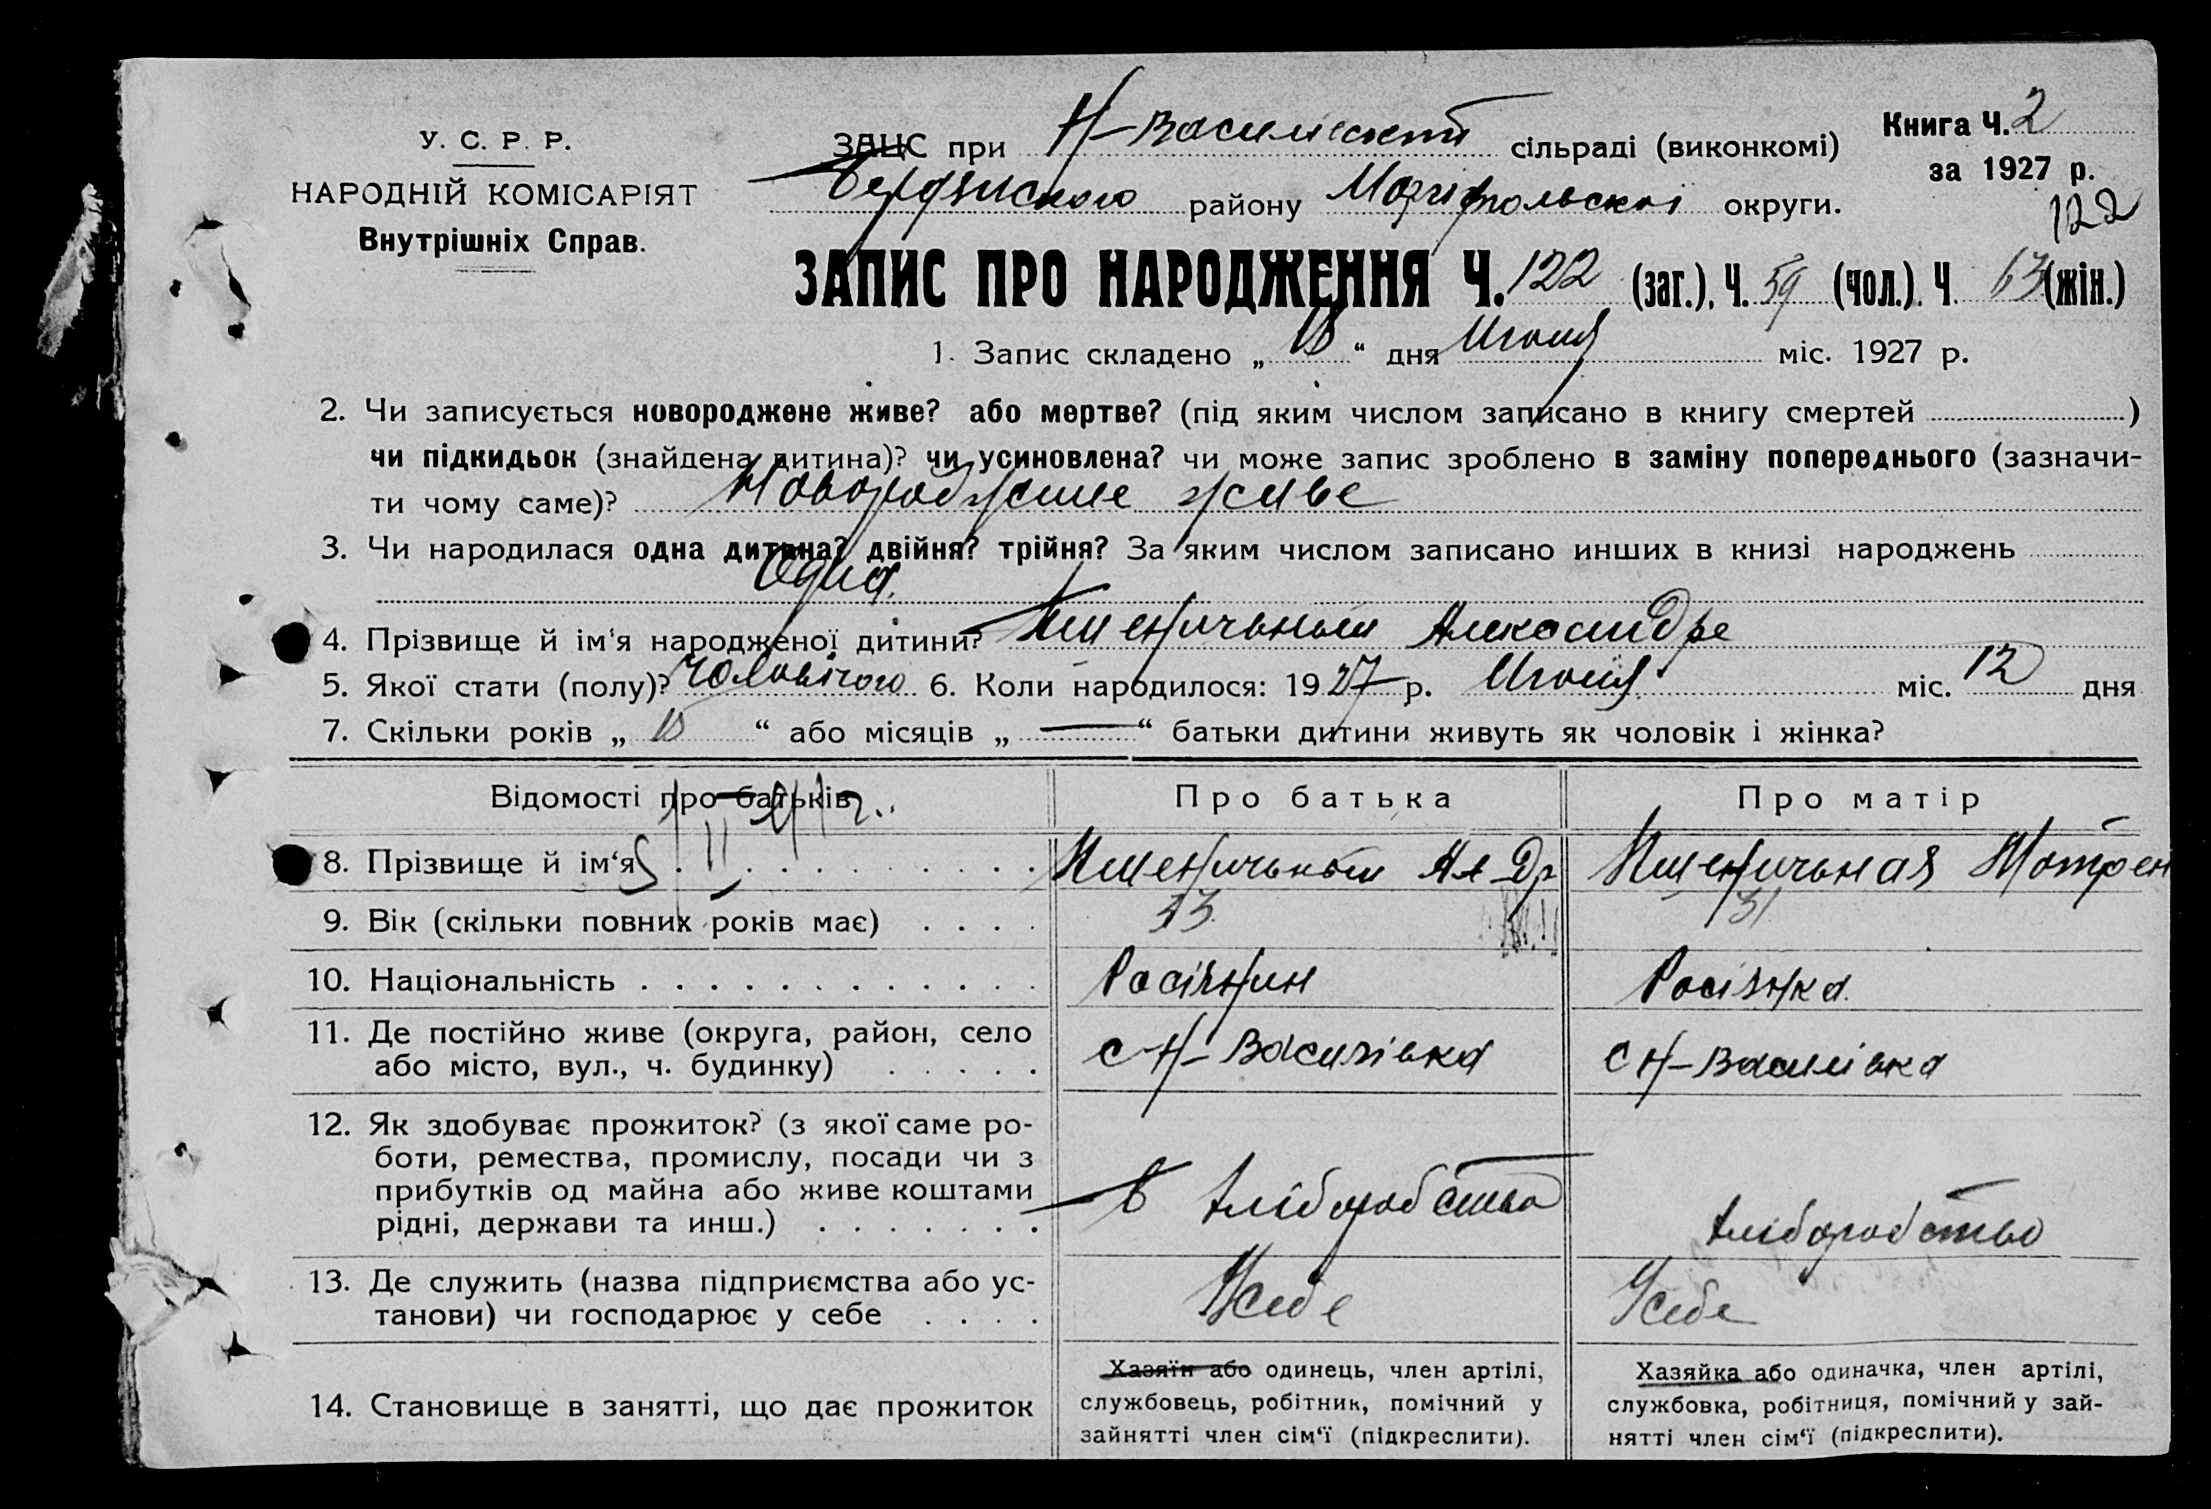 У. С. Р. Р.
НАРОДНІЙ КОМІСАРІЯТ
Внутрішніх Справ.
ЗАЦС при Н-Василівскій сільраді (виконкомі)
Бердянского району Маріюпольскої округи.
Книга Ч. 2
за 1927 р.
122
ЗАПИС ПРО НАРОДЖЕННЯ Ч. 122 (заг.), Ч. 59 (чол.). Ч 63 (жін.)
1. Запис складено „ 18 “ дня Июня міс. 1927 р.
2. Чи записується новороджене живе? або мертве? (під яким числом записано в книгу смертей )
чи підкидьок (знайдена дитина)? чи усиновлена? чи може запис зроблено в заміну попереднього (зазначи-
ти чому саме)? Новороджене живе
3. Чи народилася одна дитина? двійня? трійня? За яким числом записано инших в книзі народжень
Одна.
4. Прізвище й ім'я народженої дитини? Пшеничьный Александре
5. Якої стати (полу)? Чоловічого 6. Коли народилося: 1927 р. Июня міс. 12 дня
7. Скільки років „ “ або місяців „ — “ батьки дитини живуть як чоловік і жінка?
Відомості про батьків Про батька Про матір
8. Прізвище й ім‘я Пшеничьный Ал Др Пшеничьная Мотрен
9. Вік (скільки повних років має) 33 31
10. Національність Росіянин Росіянка
11. Де постійно живе (округа, район, село
або місто, вул., ч. будинку) с Н-Василівка с Н-Василівка
12. Як здобуває прожиток? (з якої саме ро-
боти, ремества, промислу, посади чи з
прибутків од майна або живе коштами
рідні, держави та инш.) в хліборобство хліборобство
13. Де служить (назва підприємства або ус-
танови) чи господарює у себе У себе У себе
14. Становище в занятті, що дає прожиток
Хазяїн або одинець, член артілі,
службовець, робітник, помічний у
зайнятті член сім‘ї (підкреслити).
Хазяйка або одиначка, член артілі,
службовка, робітниця, помічний у зай-
нятті член сім‘ї (підкреслити).